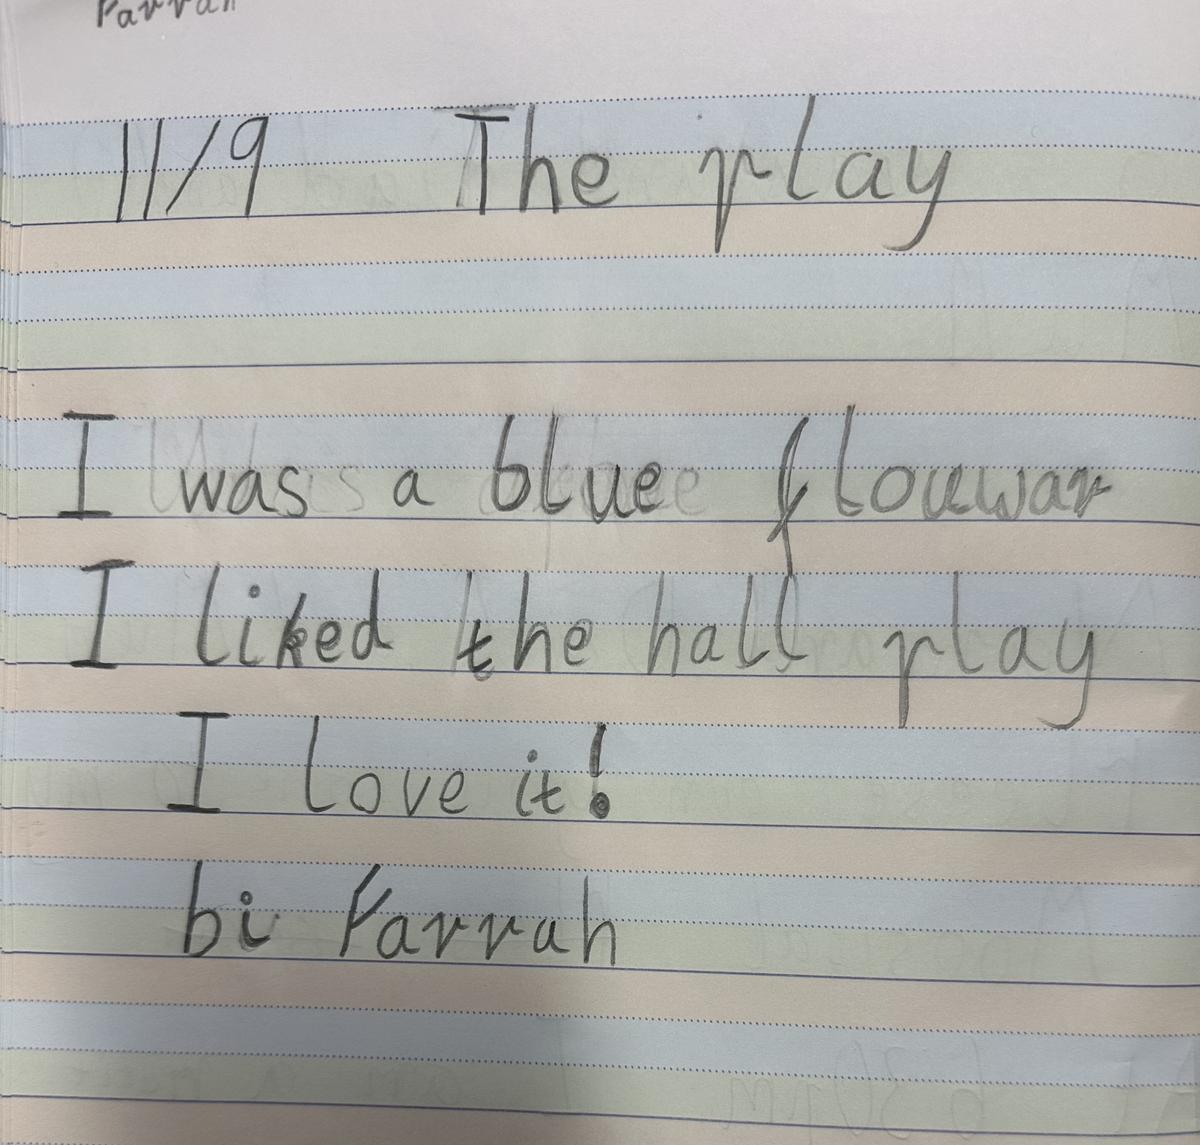 Farrah
11/9 The play
I was a blue flouwar
I liked the hall play
I love it!
bi Farrah